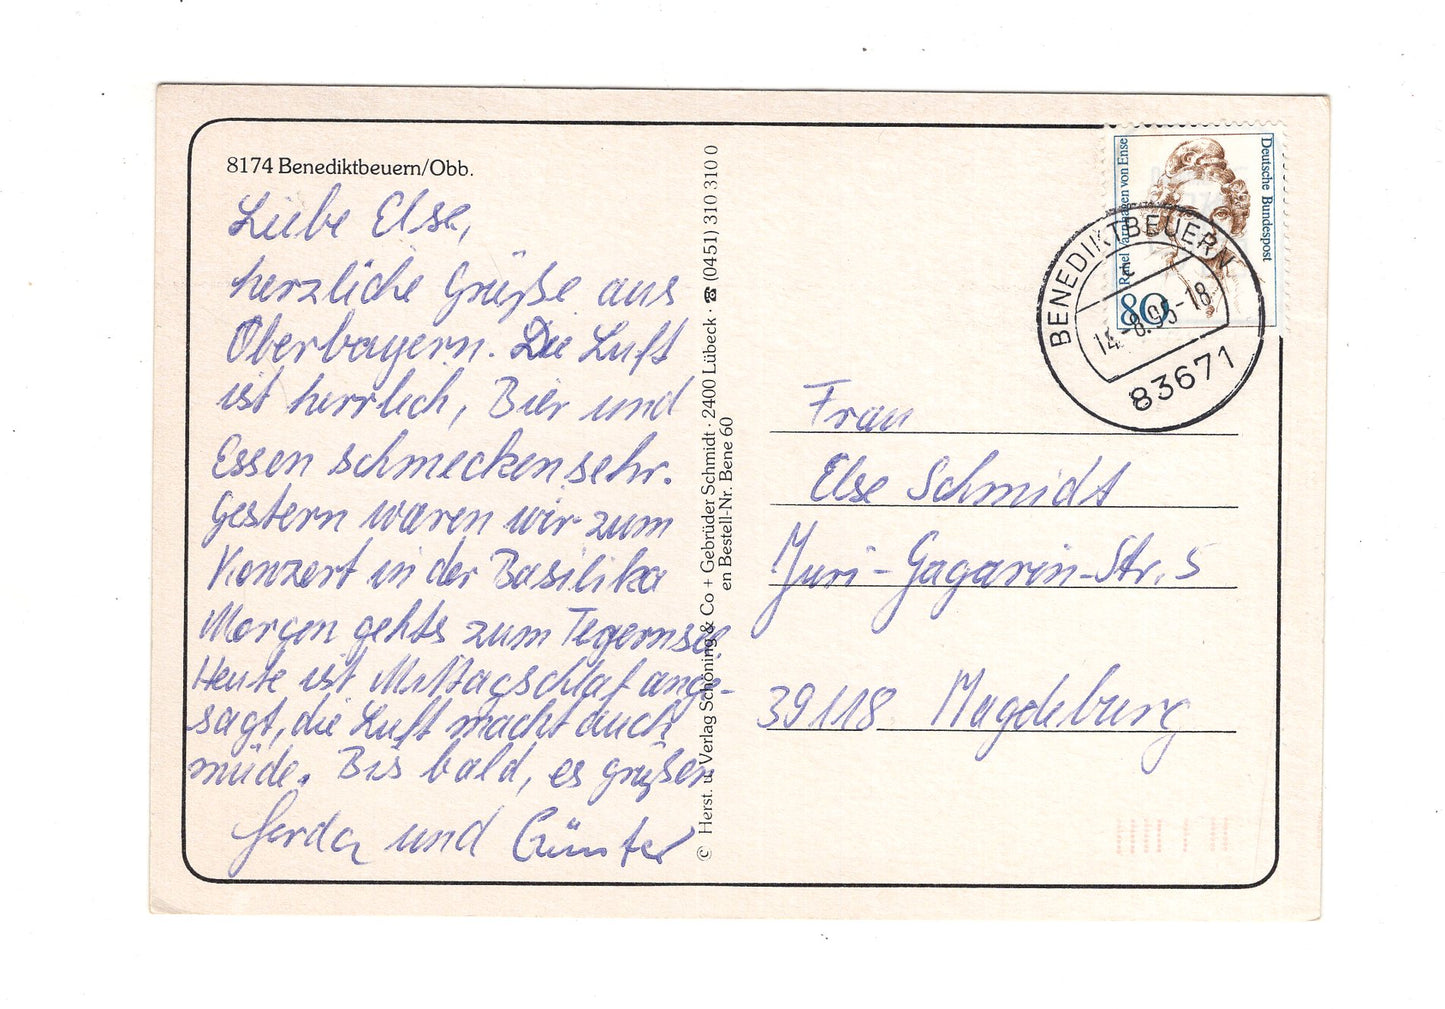 8174 Benediktbeuern/Obb.
Liebe Else,
herzliche Grüße aus
Oberbayern. Die Luft
ist herrlich, Bier und
Essen schmecken sehr.
Gestern waren wir zum
Konzert in der Basilika
Morgen gehts zum Tegernsee.
Heute ist Mittagschlaf ange-
sagt, die Luft macht auch
müde. Bis bald, es grüßen
Gerda und Günter
© Herst. u. Verlag Schöning & Co + Gebrüder Schmidt · 2400 Lübeck · ☎ (0451) 310 310 0
en Bestell-Nr. Bene 60
Deutsche Bundespost
Rahel Varnhagen von Ense
80
BENEDIKTBEUERN
14.-8.95-18
83671
Frau
Else Schmidt
Juri-Gagarin-Str. 5
39118 Magdeburg